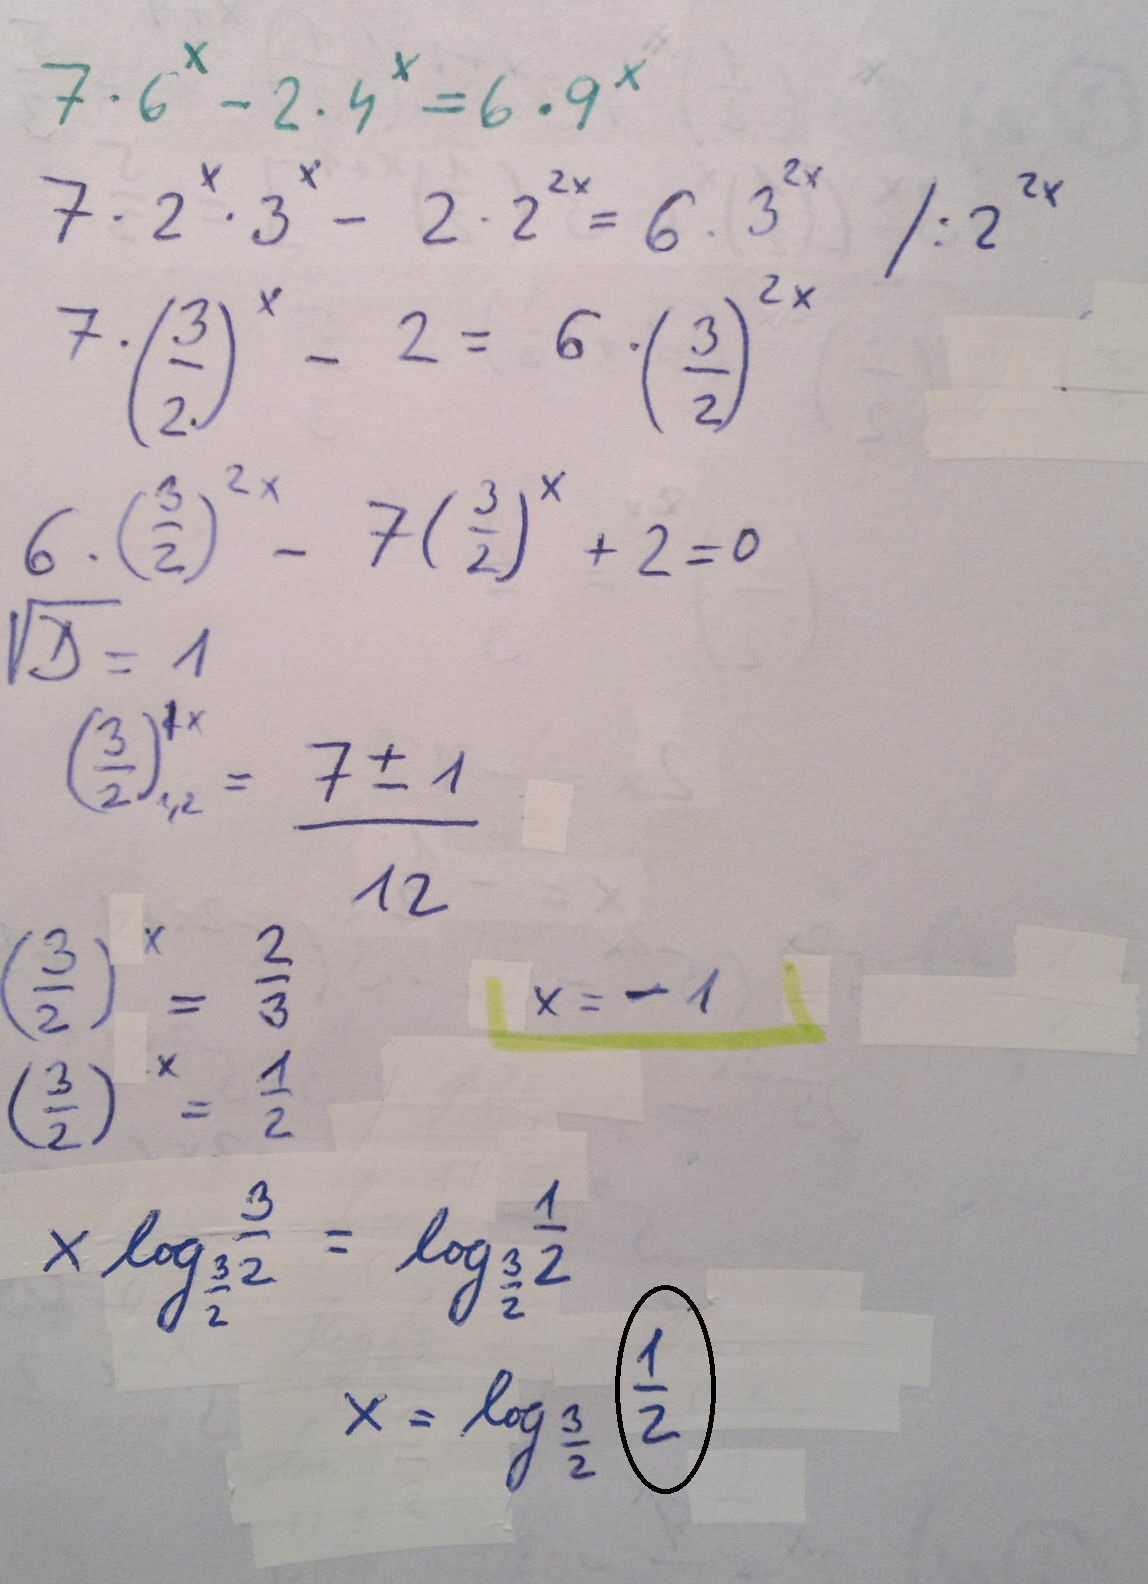 7·6^x - 2·4^x = 6·9^x
7·2^x·3^x - 2·2^2x = 6·3^2x /:2^2x
7·(3/2)^x - 2 = 6·(3/2)^2x
6·(3/2)^2x - 7(3/2)^x + 2 = 0
√D = 1
(3/2)^1x_1,2 = (7±1)/12
(3/2)^x = 2/3 x = -1
(3/2)^x = 1/2
x log_3/2 3/2 = log_3/2 1/2
x = log_3/2 1/2